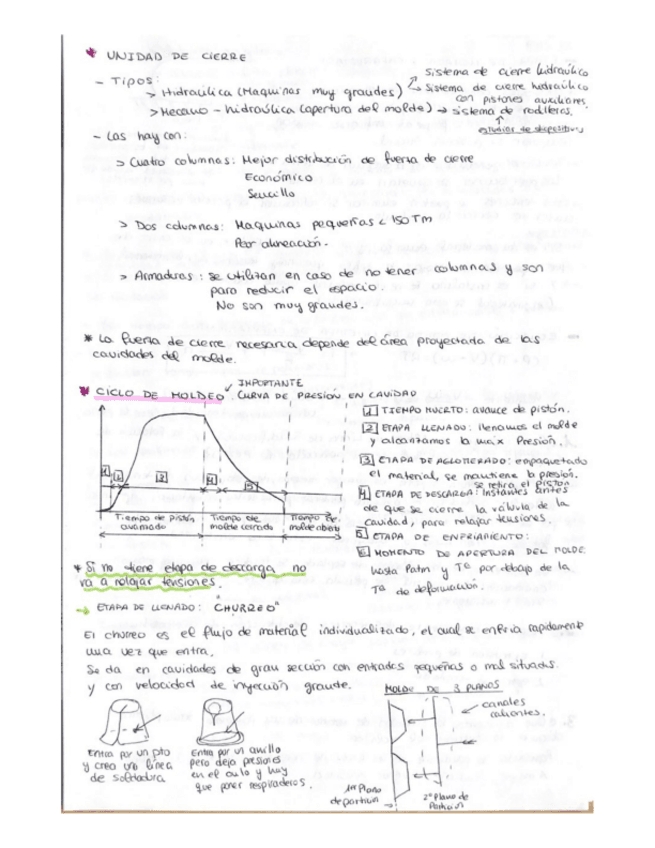 * UNIDAD DE CIERRE
- Tipos:
> Hidraúlica (Maquinas muy grandes) → Sistema de cierre hidraúlico
→ Sistema de cierre hidraúlico con pistones auxiliares.
> Mecano-hidraúlica (apertura del molde) → sistema de rodilleras.
- Las hay con:
> Cuatro columnas: Mejor distribución de fuerza de cierre
Económico
Sencillo
> Dos columnas: Maquinas pequeñas < 150 Tm
Peor alineación.
> Armaduras: se utilizan en caso de no tener columnas y son
para reducir el espacio.
No son muy grandes.
* La fuerza de cierre necesaria depende del área proyectada de las
cavidades del molde.
* CICLO DE MOLDEO
IMPORTANTE
CURVA DE PRESIÓN EN CAVIDAD
1 2 3 4 5
Tiempo de pistón
avanzado
Tiempo de
molde cerrado
Tiempo de
molde abierto
1 TIEMPO MUERTO: avance de pistón.
2 ETAPA LLENADO: llenamos el molde
y alcanzamos la máx Presión.
3 ETAPA DE AGLOMERADO: empaquetado
el material, se mantiene la presión.
se retira el piston
4 ETAPA DE DESCARGA: Instantes antes
de que se cierre la válvula de la
cavidad, para relajar tensiones.
5 ETAPA DE ENFRIAMIENTO:
6 MOMENTO DE APERTURA DEL MOLDE.
hasta Patm y Tª por debajo de la
Tª de deformación.
* Si no tiene etapa de descarga no
va a relajar tensiones.
→ ETAPA DE LLENADO: "CHURREO"
El churreo es el flujo de material individualizado, el cual se enfría rapidamente
una vez que entra.
Se da en cavidades de gran sección con entradas pequeñas o mal situadas
y con velocidad de inyección grande.
Entra por un pto
y crea una línea
de soldadura
Entra por un anillo
pero deja presiones
en el aulo y hay
que poner respiraderos.
MOLDE DE 3 PLANOS
canales
calientes.
1er Plano
de particion
2º Plano de
Partición